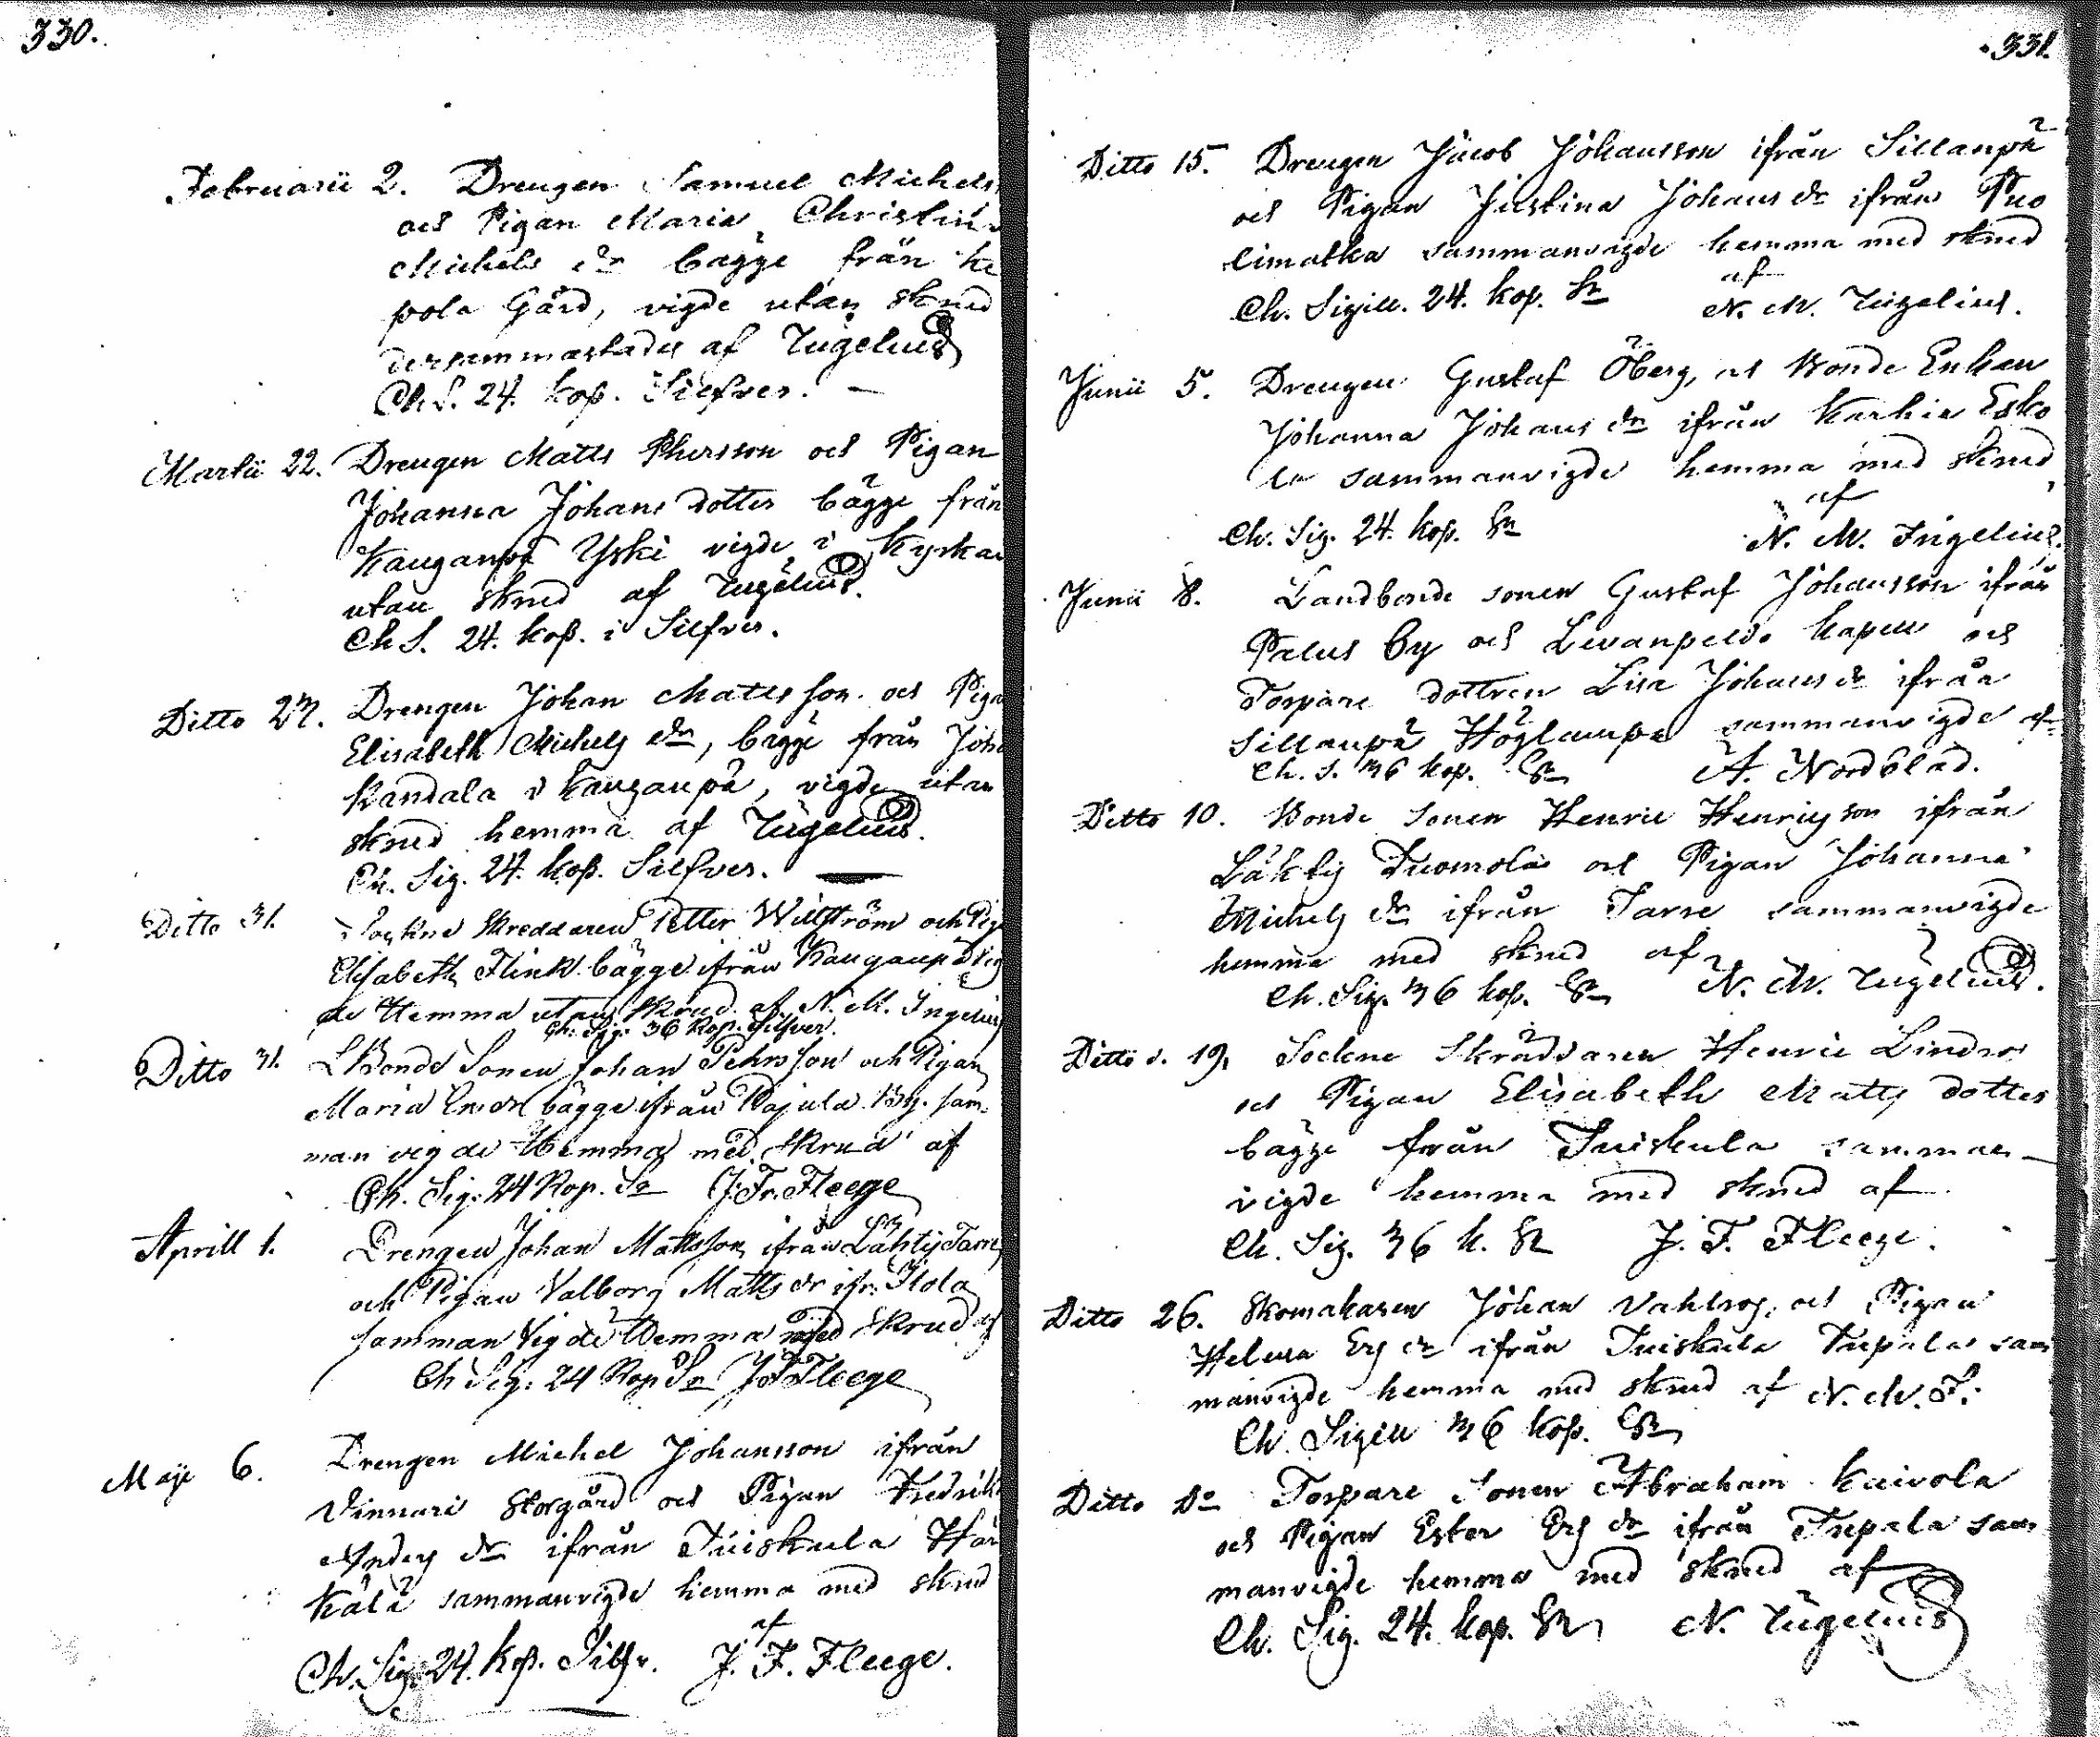 330.
Februarii 2. Drengen Samuel Michels
och Pigan Maria Christin
Michels dr bägge från Ke
pola Gård, vigde utan skrud
dersammastädes af Ingelius
Ch S. 24. kop. Silfver. —
Martii 22. Drengen Matts Phersson och Pigan
Johanna Johans dotter bägge från
Kauganpä Yski vigde i Kyrkan
utan skrud af Ingelius.
Ch S. 24. kop. i Silfver.
Ditto 27. Drengen Johan Matts son och Piga
Elisabeth Michels dr, bägge från Joh
Kandala i Kauganpä, vigde utan
skrud hemma af Ingelius.
Ch. Sig. 24. kop. Silfver. —
Ditto 31. Sockne Skreddaren Petter Willström och Pig
Elisabeth Flink bägge ifrån Kauganpä Vig
de Hemma utan Skrud af N. M. Ingelius
Ch. Sig. 36 Kop. Silfver.
Ditto 31. LBonde Sonen Johan Pehrsson och Pigan
Maria bägge ifrån Pajula By. sam-
man vigde Hemma med Skrud af
Ch. Sig. 24 Kop. Sr J. Fr. Fleege
Aprill 1. Drengen Johan Mattsson ifrån Lähty Tarre
och Pigan Valborg Matts dr ifr. Ilola
samman Vigde Hemma med Skrud af
Ch Sig. 24 Kop Sr J F Fleege
Maji 6. Drengen Michel Johansson ifrån
Vinnari Storgård och Pigan Fredrika
Anders dr ifrån Tuiskula Här
kälä sammanvigde hemma med skrud
af
Ch. Sig. 24. kop. Silfv. J. F. Fleege.
331.
Ditto 15. Drengen Jacob Johansson ifrån Sillanpä
och Pigan Justina Johans dr ifrån Puo
limatka sammanvigde hemma med skrud
af
Ch. Sigill. 24. kop. Sr N. M. Ingelius.
Junii 5. Drengen Gustaf Öberg, och Bonde Enkan
Johanna Johans dr ifrån Karhia Esko
la sammanvigde hemma med skrud
af
Ch. Sig. 24. kop. Sr N. M. Ingelius.
Junii 8. Landbonde sonen Gustaf Johansson ifrån
Palus by och Levanpeldo Kapell och
Torpare dottren Lisa Johans dr ifrån
Sillanpä Höglampa sammanvigde af
Ch. S. 36 kop. Sr A. Nordblad.
Ditto 10. Bonde sonen Henric Henricsson ifrån
Lähty Tuomola och Pigan Johanna
Michels dr ifrån Tarre sammanvigde
hemma med skrud af
Ch. Sig. 36 kop. Sr N. M. Ingelius.
Ditto d. 19, Sockne Skräddaren Henric Lindro
och Pigan Elisabeth Matts dotter
bägge från Tuiskula samman —
vigde hemma med skrud af
Ch. Sig. 36 k. Sr J. F. Fleege.
Ditto 26. Skomakaren Johan Vahlroos, och Pigan
Helena Ers dr ifrån Tuiskula Trepala sam
manvigde hemma med skrud af N. M. I.
Ch. Sigill 36 kop. Sr
Ditto do Torpare Sonen Abraham Kaivola
och Pigan Ester Ers dr ifrån Trepala sam
manvigde hemma med skrud af
Ch. Sig. 24. kop. Sr N. Ingelius